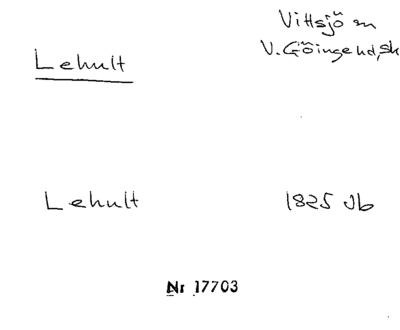 Vittsjö sn
Lehult
V. Göinge hd, Sk
Lehult 1825 Jb
Nr 17703